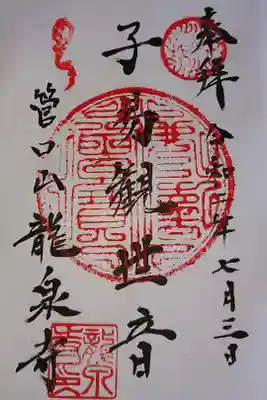 奉拝 令和 年七月三日
子易観世音
管口山 龍泉寺